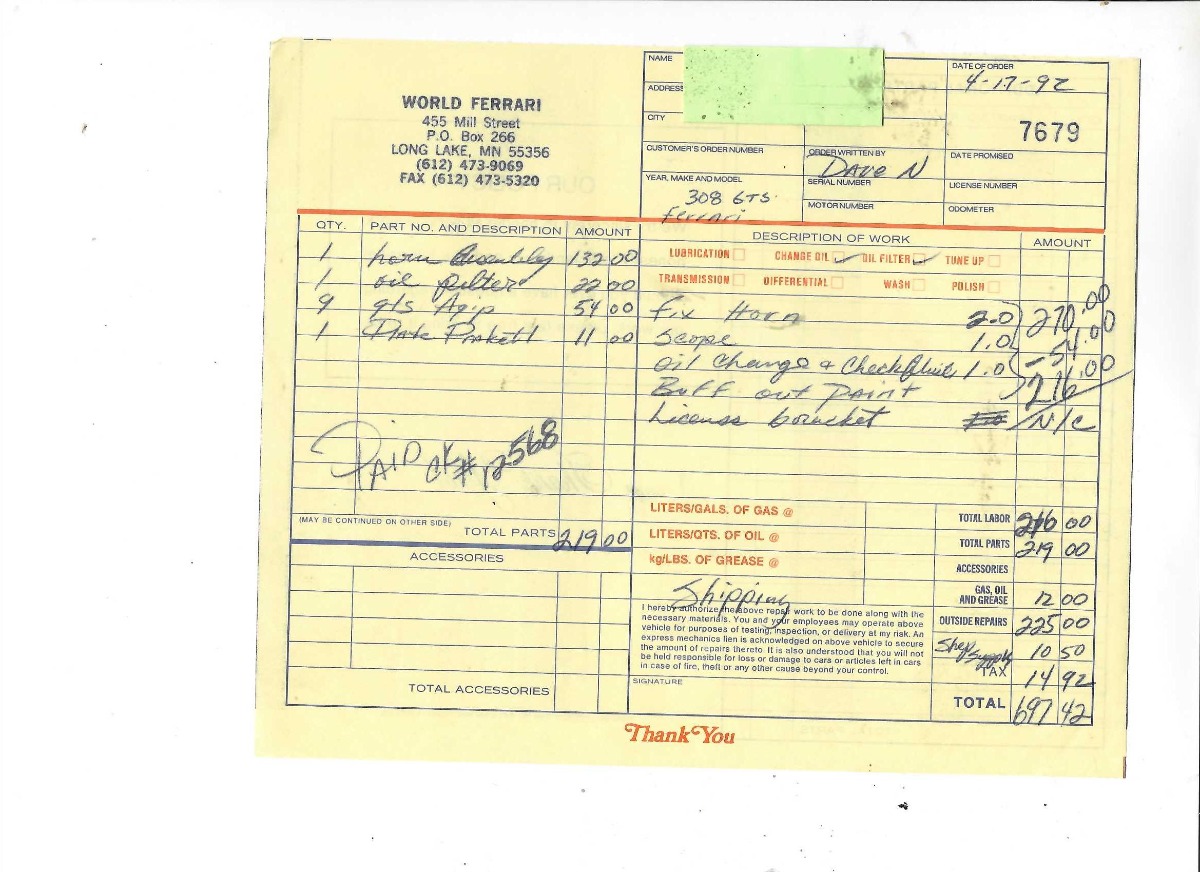 WORLD FERRARI
455 Mill Street
P.O. Box 266
LONG LAKE, MN 55356
(612) 473-9069
FAX (612) 473-5320
NAME
ADDRESS
CITY
DATE OF ORDER
4-17-92
7679
CUSTOMER'S ORDER NUMBER
ORDER WRITTEN BY
Dave N
DATE PROMISED
YEAR, MAKE AND MODEL
308 GTS
Ferrari
SERIAL NUMBER
LICENSE NUMBER
MOTOR NUMBER
ODOMETER
QTY. PART NO. AND DESCRIPTION AMOUNT
1 horn Assembly 132 00
1 oil filter 22 00
9 qts Agip 54 00
1 Plate 11 00
PAID CK# 12568
(MAY BE CONTINUED ON OTHER SIDE)
TOTAL PARTS 219 00
ACCESSORIES
TOTAL ACCESSORIES
DESCRIPTION OF WORK AMOUNT
LUBRICATION CHANGE OIL ✓ OIL FILTER ✓ TUNE UP
TRANSMISSION DIFFERENTIAL WASH POLISH
Fix Horn 2.0 270.00
Scope 1.0 -54.00
Oil Change & Check 1.0 216.00
Buff out Paint
License bracket N/C
LITERS/GALS. OF GAS @
LITERS/QTS. OF OIL @
kg/LBS. OF GREASE @
Shipping
TOTAL LABOR 216 00
TOTAL PARTS 219 00
ACCESSORIES
GAS, OIL AND GREASE 12 00
OUTSIDE REPAIRS 225 00
Shop Supply 10 50
TAX 14 92
TOTAL 697 42
I hereby authorize the above repair work to be done along with the
necessary materials. You and your employees may operate above
vehicle for purposes of testing, inspection, or delivery at my risk. An
express mechanics lien is acknowledged on above vehicle to secure
the amount of repairs thereto. It is also understood that you will not
be held responsible for loss or damage to cars or articles left in cars
in case of fire, theft or any other cause beyond your control.
SIGNATURE
Thank You